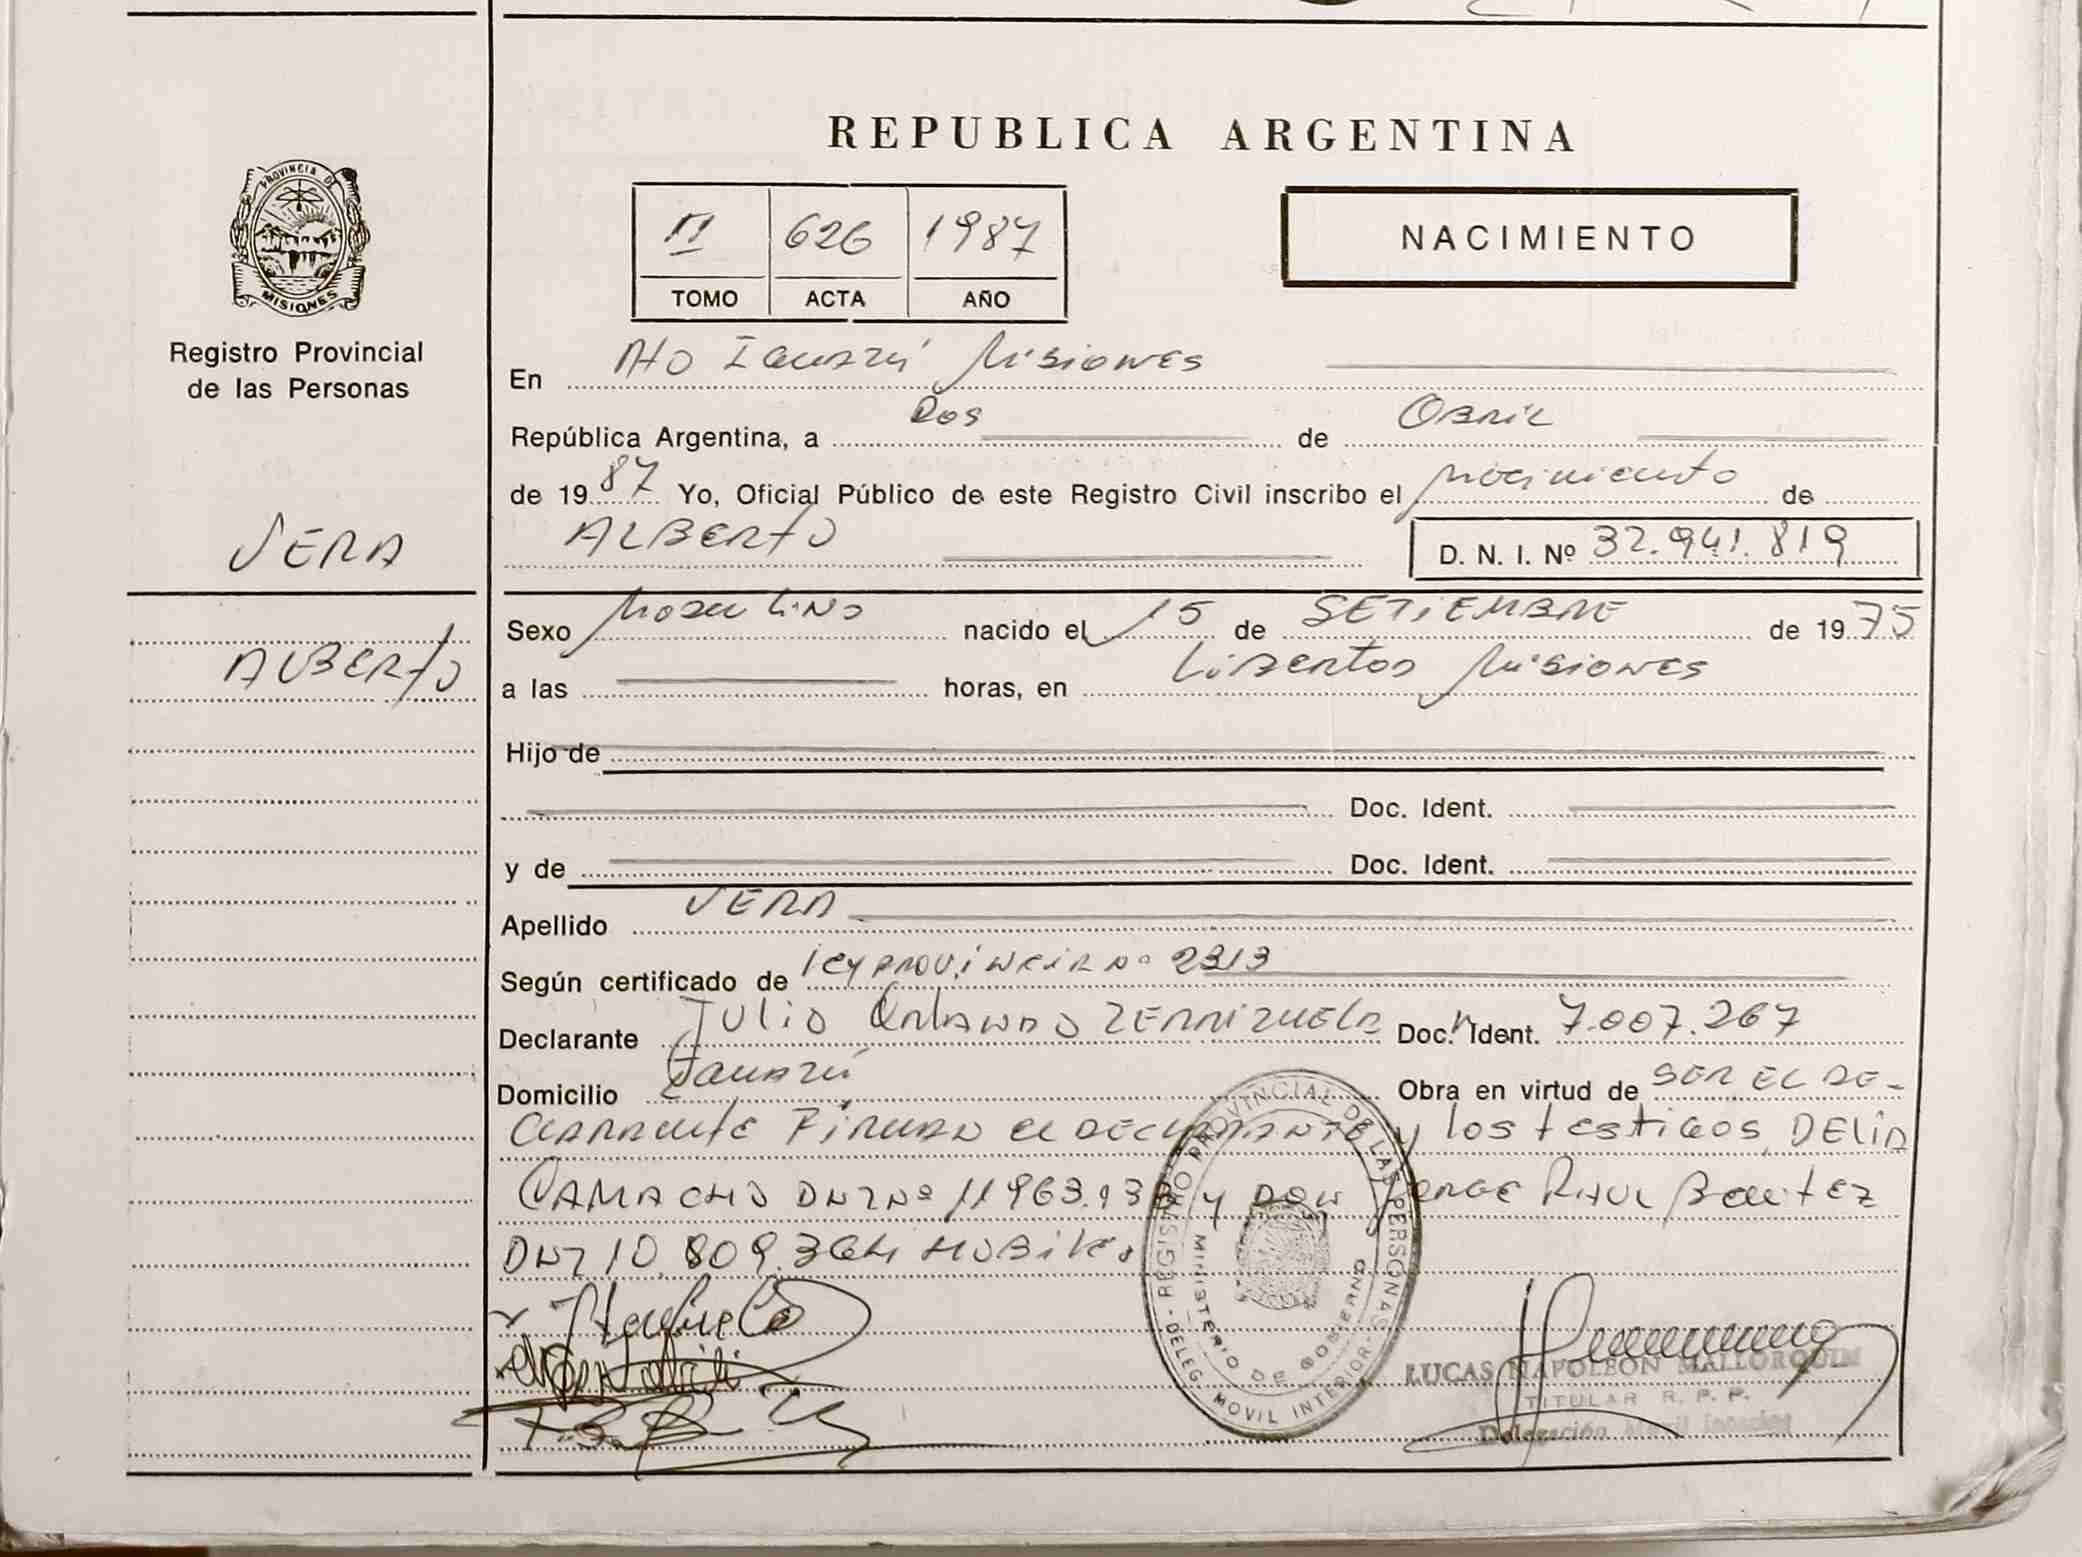 REPUBLICA ARGENTINA
PROVINCIA DE
MISIONES
Registro Provincial
de las Personas
II 626 1987
TOMO ACTA AÑO
NACIMIENTO
En Pto Iguazú Misiones
República Argentina, a Dos de Abril
de 1987 Yo, Oficial Público de este Registro Civil inscribo el nacimiento de
VERA
ALBERTO D. N. I. Nº 32.941.819
Sexo Masculino nacido el 15 de SETIEMBRE de 1975
ALBERTO
a las horas, en Libertad Misiones
Hijo de
Doc. Ident.
y de Doc. Ident.
Apellido VERA
Según certificado de ley provincial Nº 2313
Declarante Julio Orlando ZERRIZUELA Doc. Ident. 7.007.267
Domicilio Iguazú Obra en virtud de SER EL DE-
clarante Firman el declarante y los testigos DELIA
CAMACHO DNI Nº 11963.13 y Don Jorge Raul Benitez
DNI 10.809.364
REGISTRO PROVINCIAL DE LAS PERSONAS - DELEG. MOVIL INTERIOR -
MINISTERIO DE GOBIERNO
LUCAS NAPOLEON MALLORQUIN
TITULAR R. P. P.
Delegación Movil Interior